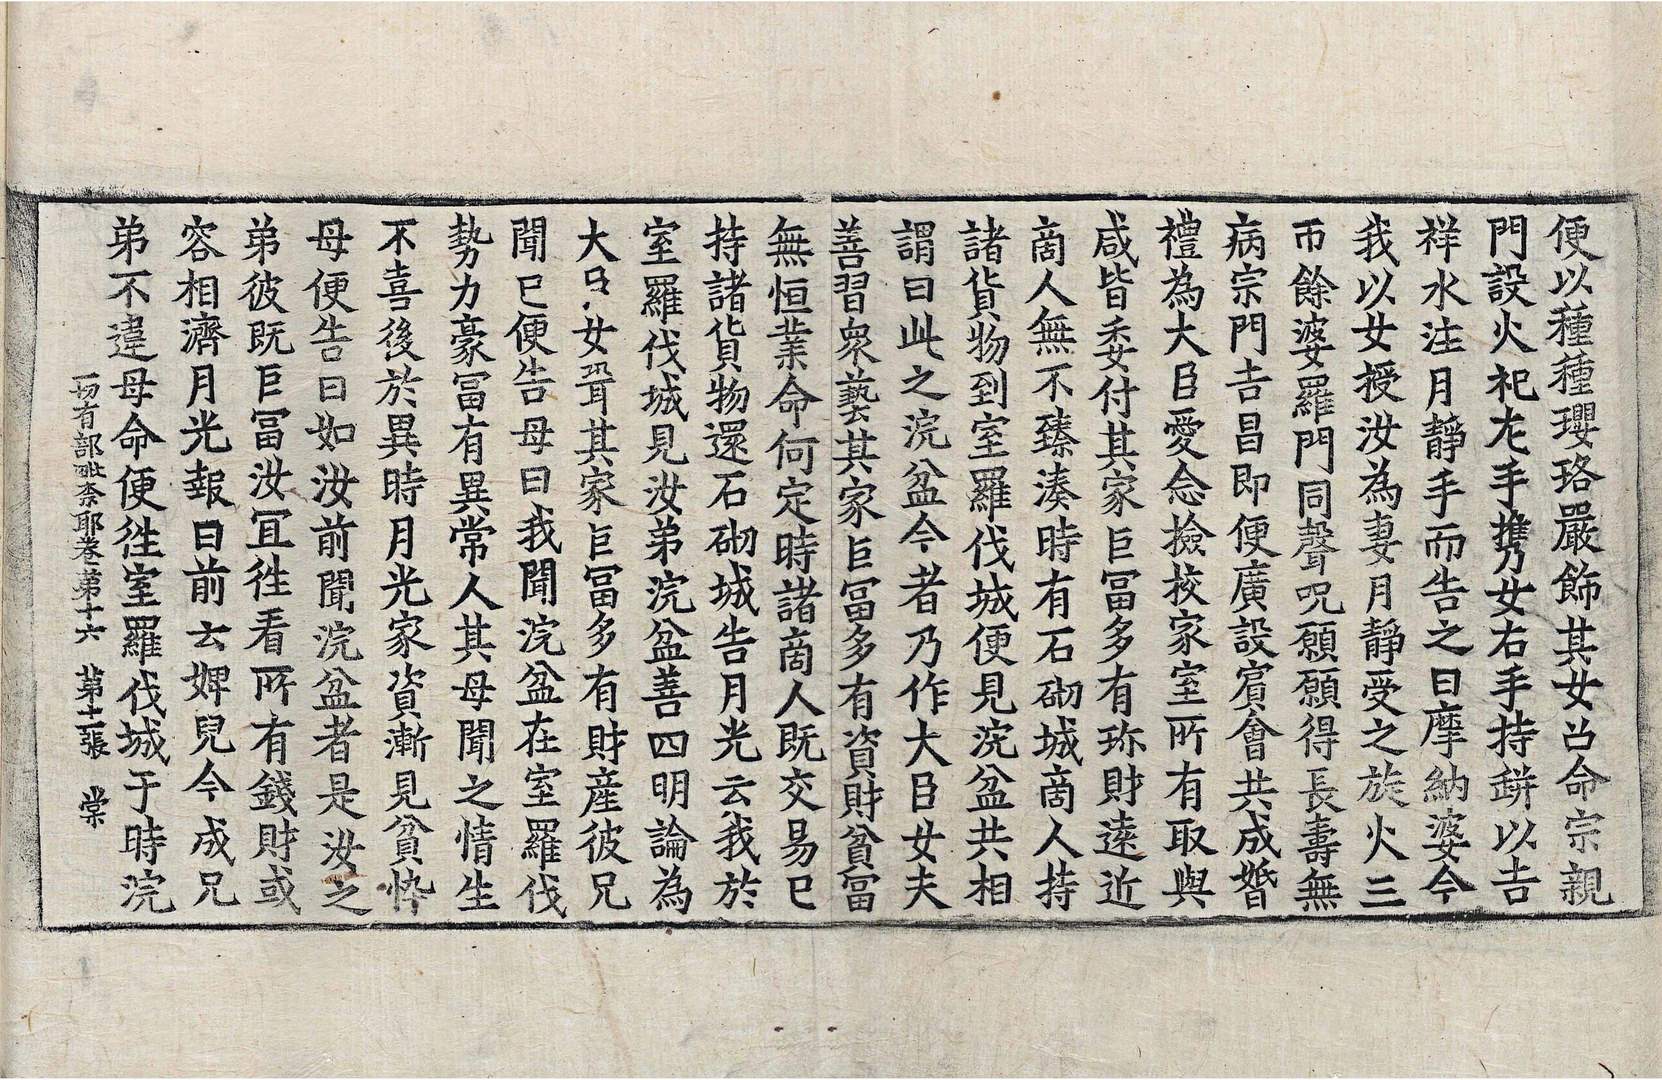 便以種種瓔珞嚴飾其女召命宗親
門設火祀左手攜女右手持鉼以吉
祥水注月靜手而告之曰摩納婆今
我以女授汝為妻月靜受之旋火三
帀餘婆羅門同聲呪願願得長壽無
病宗門吉昌即便廣設賔會共成婚
禮為大臣愛念撿挍家室所有取與
咸皆委付其家巨冨多有珎財遠近
商人無不臻湊時有石砌城商人持
諸貨物到室羅伐城便見浣盆共相
謂曰此之浣盆今者乃作大臣女夫
善習衆藝其家巨冨多有資財貧冨
無恒業命何定時諸商人既交易已
持諸貨物還石砌城告月光云我於
室羅伐城見汝弟浣盆善四明論為
大臣女壻其家巨冨多有財産彼兄
聞已便告母曰我聞浣盆在室羅伐
勢力豪冨有異常人其母聞之情生
不喜後於異時月光家資漸見貧悴
母便告曰如汝前聞浣盆者是汝之
弟彼既巨冨汝宜徃看所有錢財或
容相濟月光報曰前云婢兒今成兄
弟不違母命便徃室羅伐城于時浣
一切有部毗奈耶卷第十六 第十二張 棠